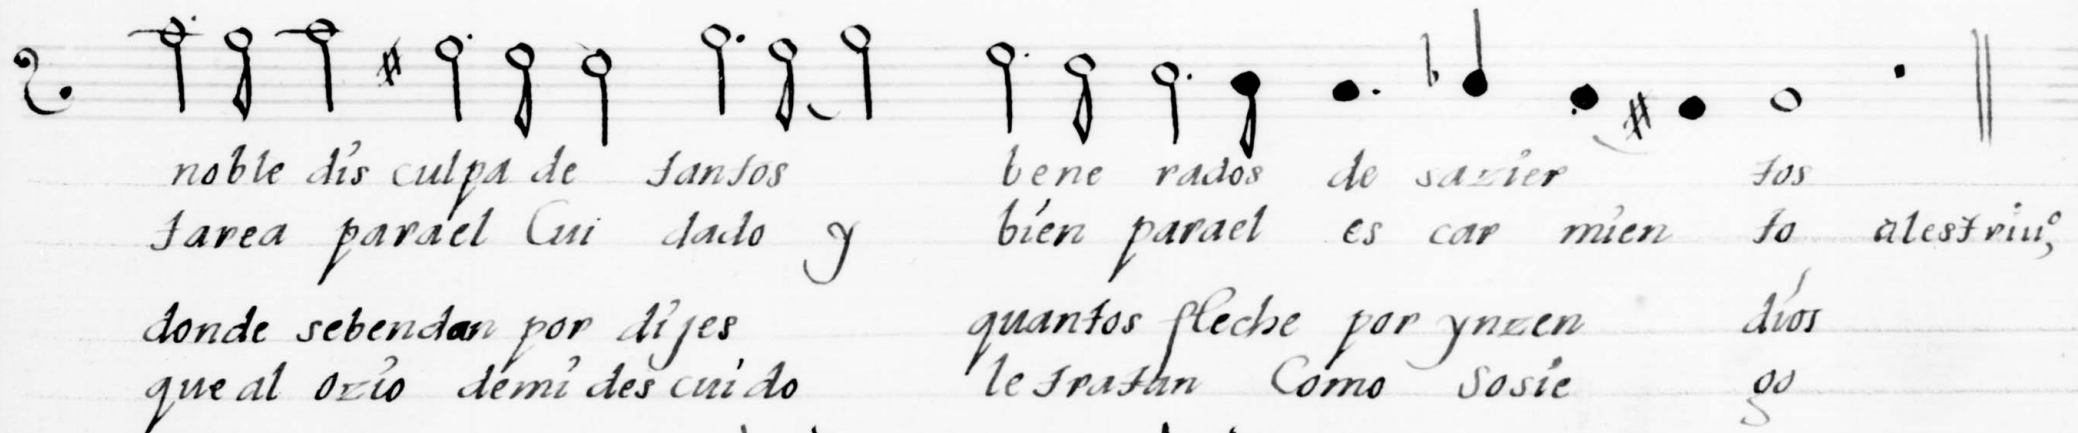 noble dis culpa de tantos bene rados de sazier tos
tarea parael Cui dado y bien parael es car mien to alestriuº,
donde sebendan por dijes quantos fleche por ynzen dios
que al ozio demi des cuido le tratan Como Sosie go